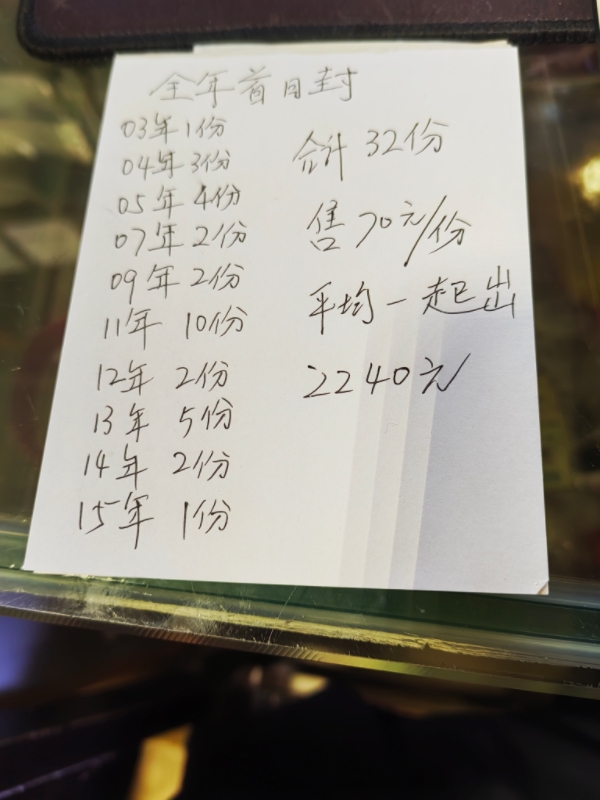 全年首日封
03年1份
04年3份
05年4份
07年2份
09年2份
11年 10份
12年 2份
13年 5份
14年 2份
15年 1份
合计 32份
售70元/份
平均一起出
2240元